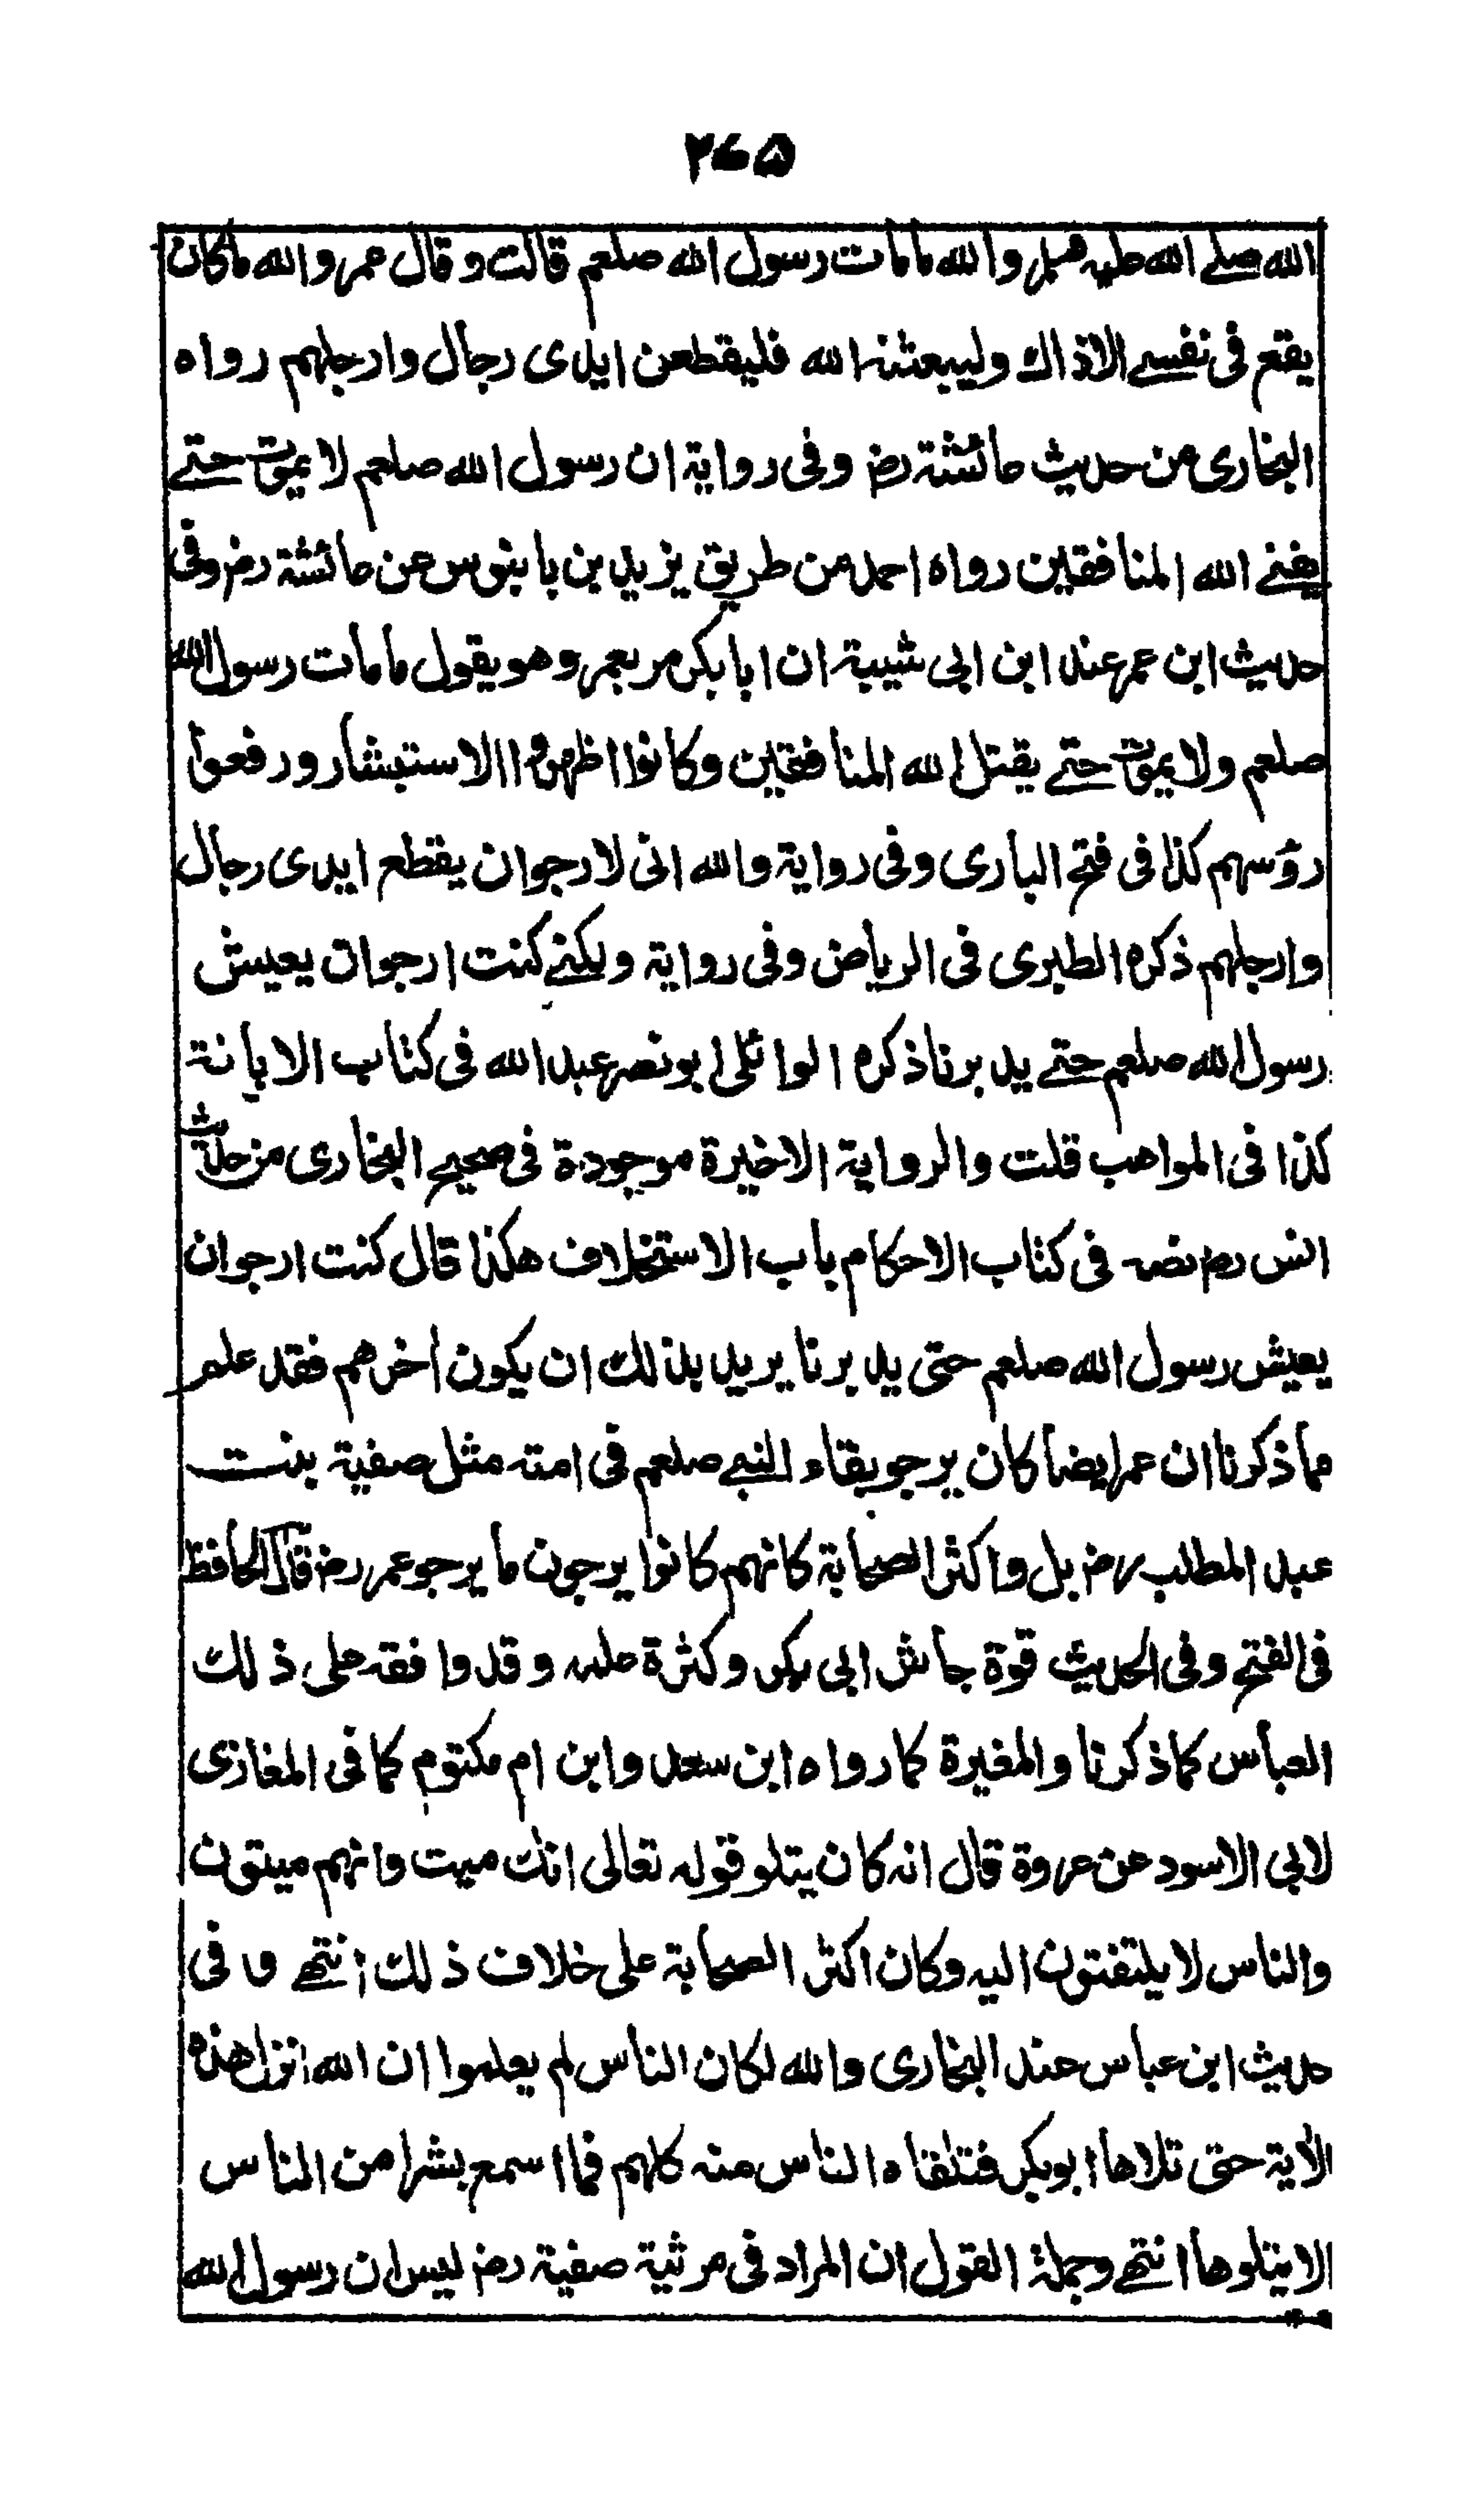 ۲۶۵
الله صلے الله عليه وسلم والله مامات رسول الله صلعم قالت وقال عمر والله ماكان
يقع فى نفسے الاذاك وليبعثنه الله فليقطعن ايدى رجال وارجلهم رواه
البخارى من حديث عائشة رض وفى رواية ان رسول الله صلعم لا يموت حتے
يفنے الله المنافقين رواه احمد من طريق يزيد بن بابنوس عن عائشة رض وفى
حديث ابن عمر عند ابن ابى شيبة ان ابا بكر مر بعمر وهو يقول مامات رسول الله
صلعم ولا يموت حتے يقتل الله المنافقين وكانوا اظهروا الاستبشار ورفعوا
رؤسهم كذا فى فتح البارى وفى رواية والله انى لارجوان يقطع ايدى رجال
وارجلهم ذكره الطبرى فى الرياض وفى رواية ولكنے كنت ارجوان يعيش
رسول الله صلعم حتے يدبرنا ذكره الوائلى ابو نصر عبد الله فى كتاب الابانة
كذا فى المواهب قلت والرواية الاخيرة موجودة فى صحيح البخارى من حديث
انس رض نصه فى كتاب الاحكام باب الاستخلاف هكذا قال كنت ارجوان
يعيش رسول الله صلعم حتى يدبرنا يريد بذلك ان يكون اخرهم فقد علم
مما ذكرنا ان عمر ايضا كان يرجو بقاء النبے صلعم فى امته مثل صفية بنت
عبد المطلب رض بل واكثر الصحابة كانهم كانوا يرجون ما يرجو عمر رض قال الحافظ
فى الفتح وفى الحديث قوة جاش ابى بكر وكثرة علمه وقد وافقه على ذلك
العباس كما ذكرنا والمغيرة كما رواه ابن سعد وابن ام مكتوم كما فى المغازى
لابى الاسود عن عروة قال انه كان يتلو قوله تعالى انك ميت وانهم ميتون
والناس لا يلتفتون اليه وكان اكثر الصحابة على خلاف ذلك انتهے وفى
حديث ابن عباس عند البخارى والله لكان الناس لم يعلموا ان الله انزل هذه
الأية حتى تلاها ابو بكر فتلقاه الناس منه كلهم فما اسمع بشرا من الناس
الا يتلوها انتهے وجملة القول ان المراد فى مرثية صفية رض ليس ان رسول الله